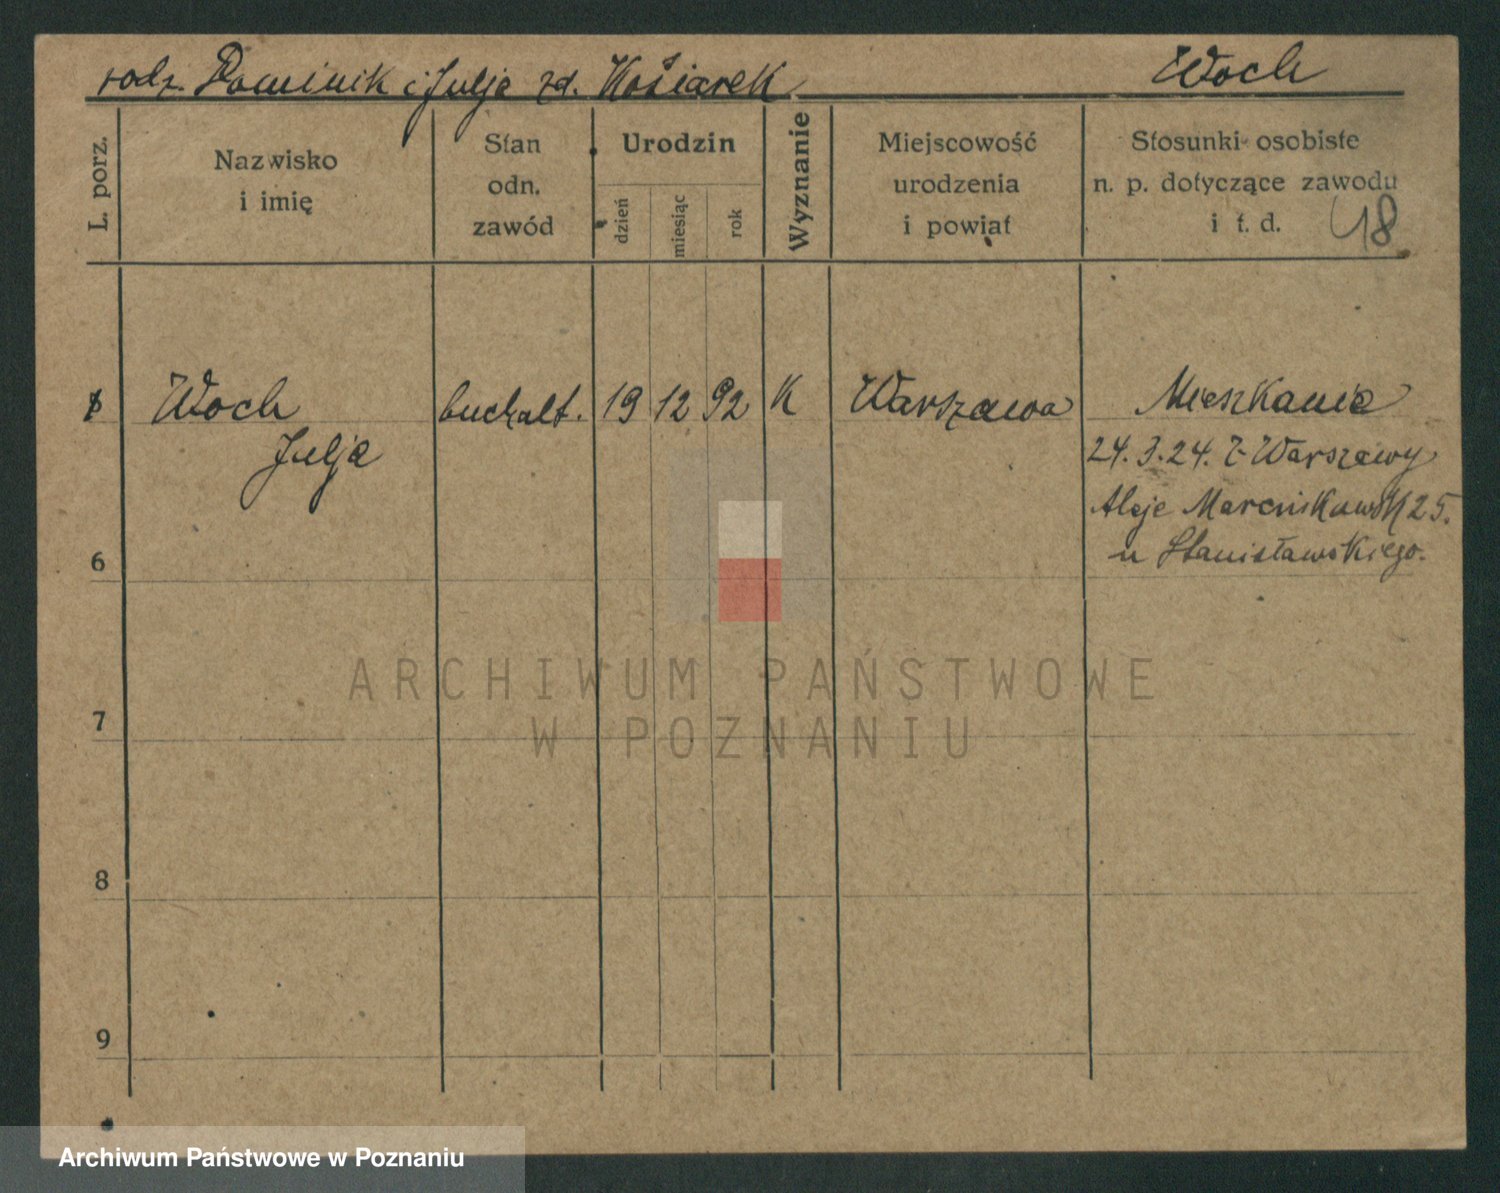 rodz. Dominik i Julja zd. Kosiarek
Woch
L. porz.
Nazwisko
i imię
Stan
odn.
zawód
Urodzin
dzień
miesiąc
rok
Wyznanie
Miejscowość
urodzenia
i powiat
Stosunki osobiste
n. p. dotyczące zawodu
i t. d.
48
Woch
Julja
buchalt.
19
12
92
K
Warszawa
Mieszkanie
24. 3. 24. z Warszawy
Aleje Marcinkowsk 25.
u Stanisławskiego.
6
7
8
9
ARCHIWUM PAŃSTWOWE
W POZNANIU
Archiwum Państwowe w Poznaniu